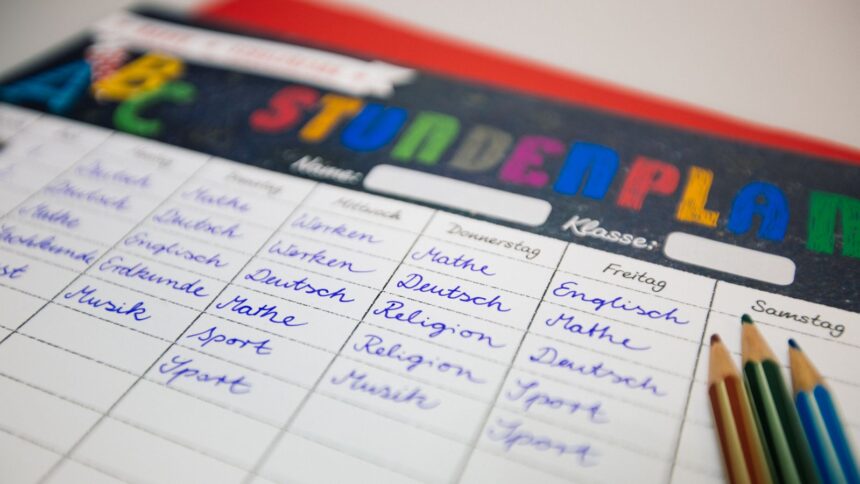 ABC STUNDENPLAN
Name: Klasse:
Mittwoch Donnerstag Freitag Samstag
Deutsch Mathe Werken Mathe Englisch
Deutsch Deutsch Werken Deutsch Mathe
Mathe Englisch Deutsch Religion Deutsch
Erdkunde Mathe Religion Sport
Musik Sport Musik Sport
Sport